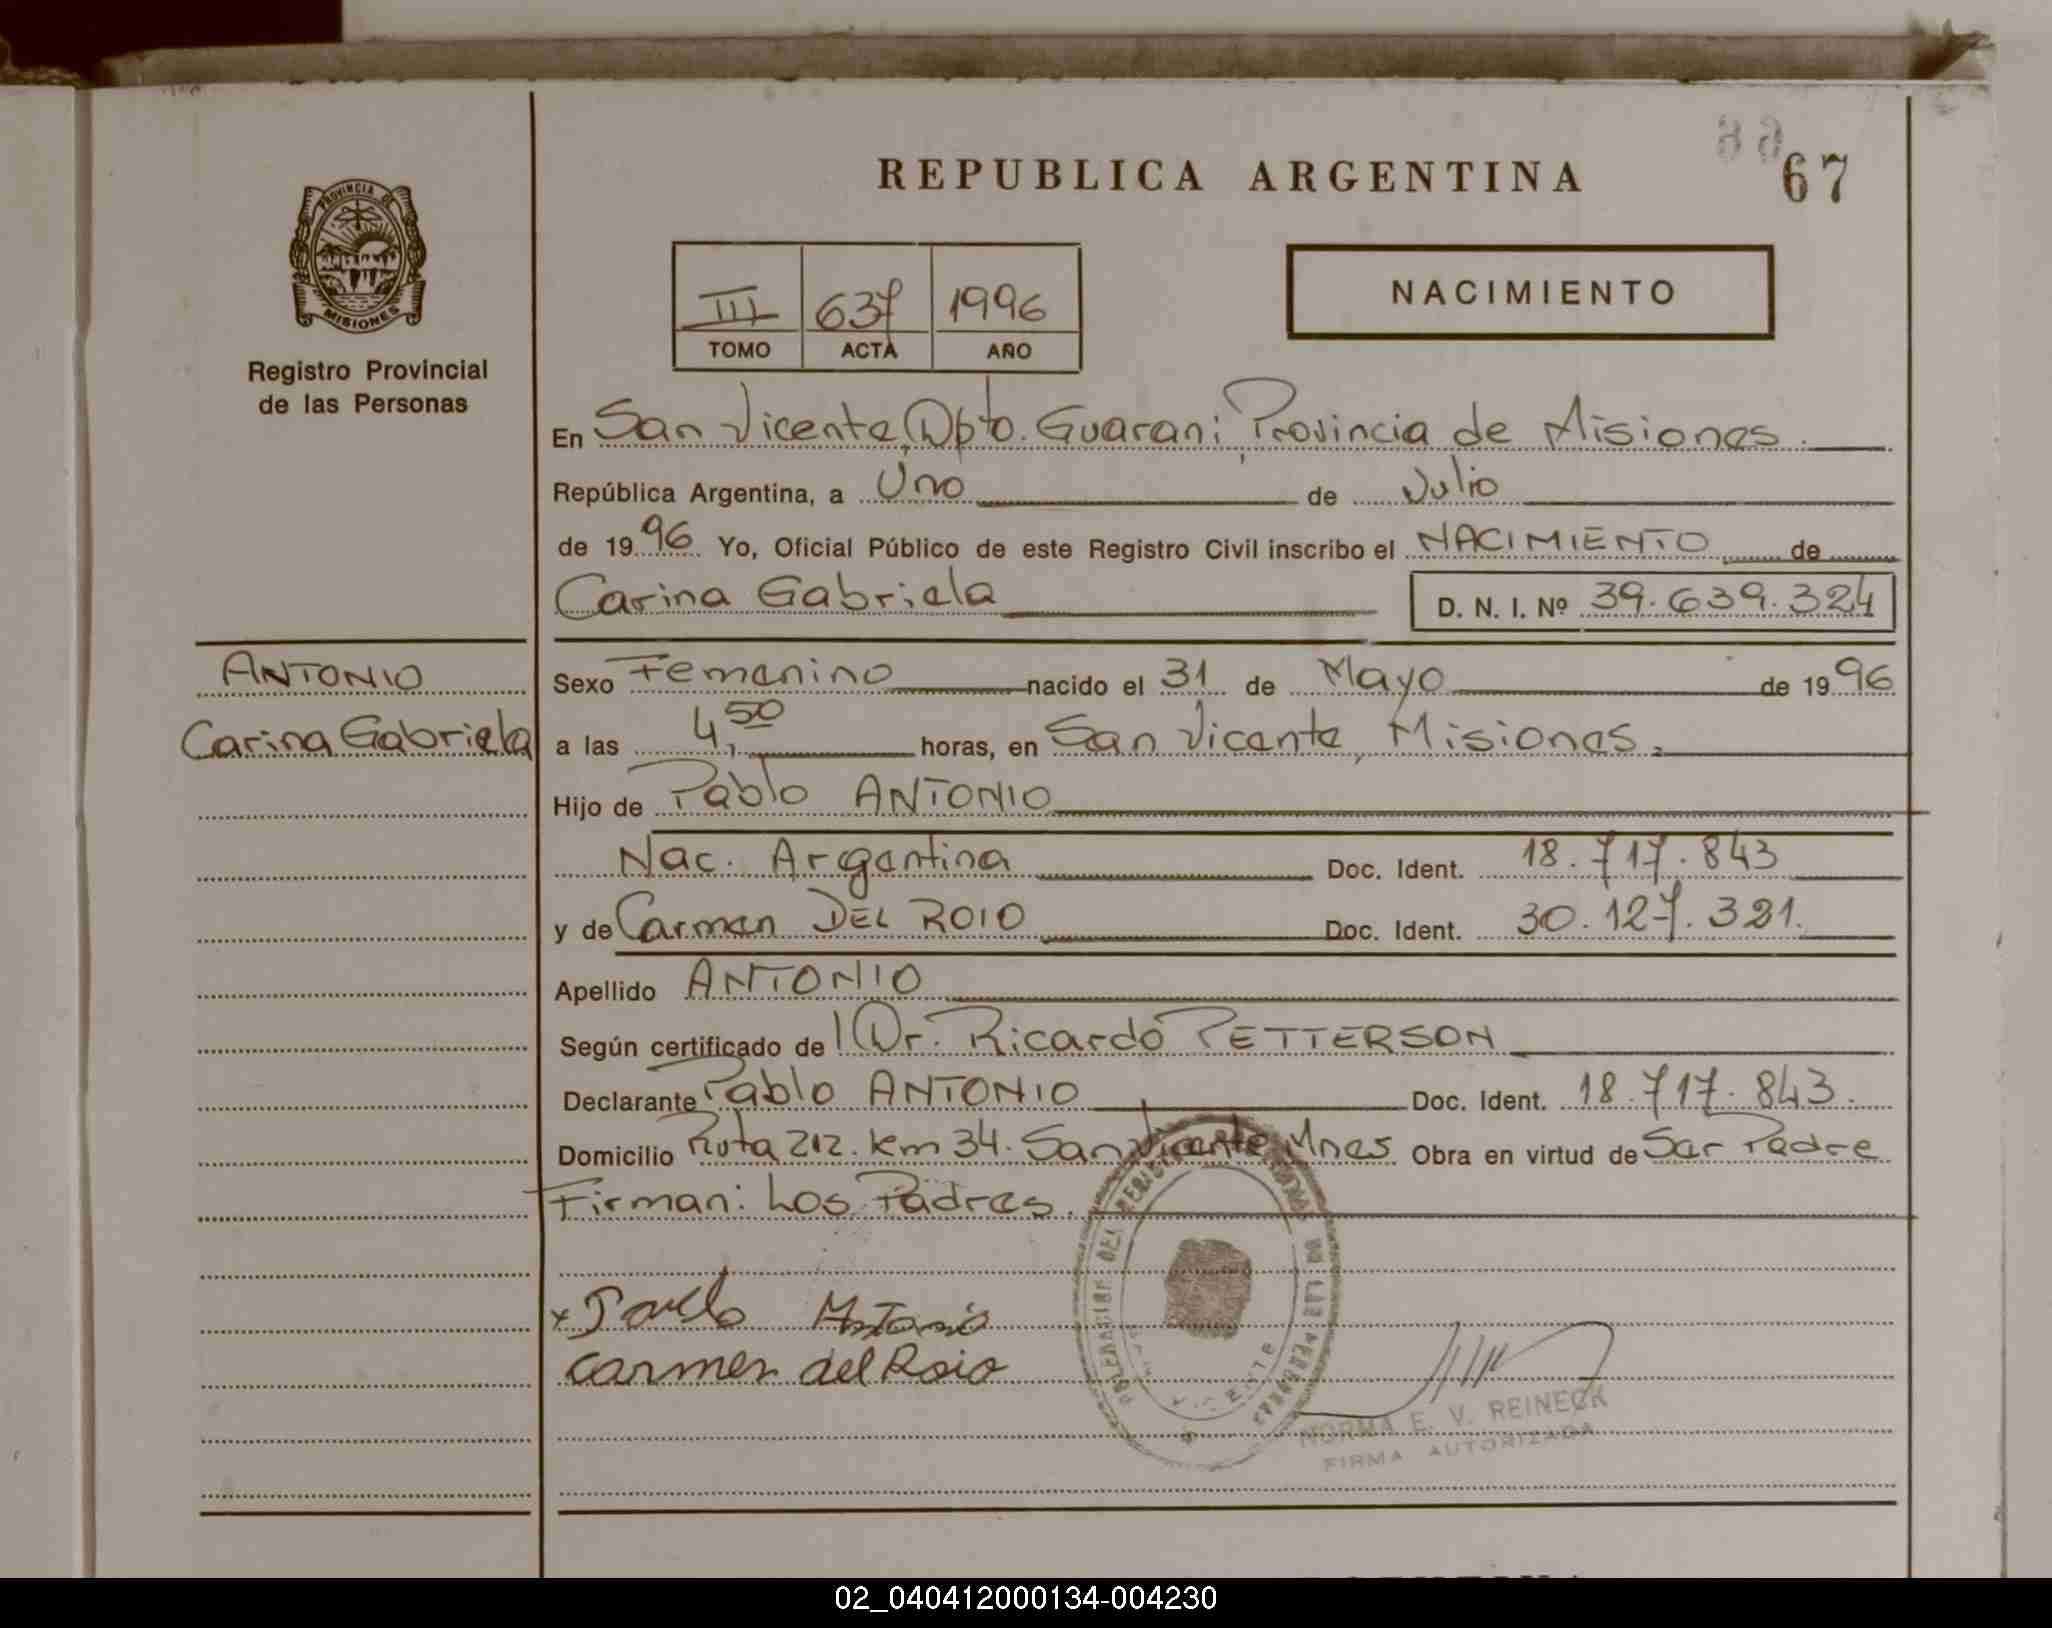 REPUBLICA ARGENTINA
67
PROVINCIA DE
MISIONES
Registro Provincial
de las Personas
III 637 1996
TOMO ACTA AÑO
NACIMIENTO
En San Vicente, Dpto. Guarani, Provincia de Misiones.
República Argentina, a Uno de Julio
de 1996 Yo, Oficial Público de este Registro Civil inscribo el NACIMIENTO de
Carina Gabriela D. N. I. Nº 39.639.324
ANTONIO
Carina Gabriela
Sexo Femenino nacido el 31 de Mayo de 1996
a las 4,50 horas, en San Vicente, Misiones.
Hijo de Pablo ANTONIO
Nac. Argentina Doc. Ident. 18.717.843
y de Carmen DEL ROIO Doc. Ident. 30.127.321.
Apellido ANTONIO
Según certificado de Dr. Ricardo PETTERSON
Declarante Pablo ANTONIO Doc. Ident. 18.717.843.
Domicilio Ruta 212. Km 34. San Vicente Mnes Obra en virtud de Ser Padre
Firman: Los Padres.
x Pablo Antonio
Carmen del Roio
VICENTE
NORMA E. V. REINECK
FIRMA AUTORIZADA
02_040412000134-004230